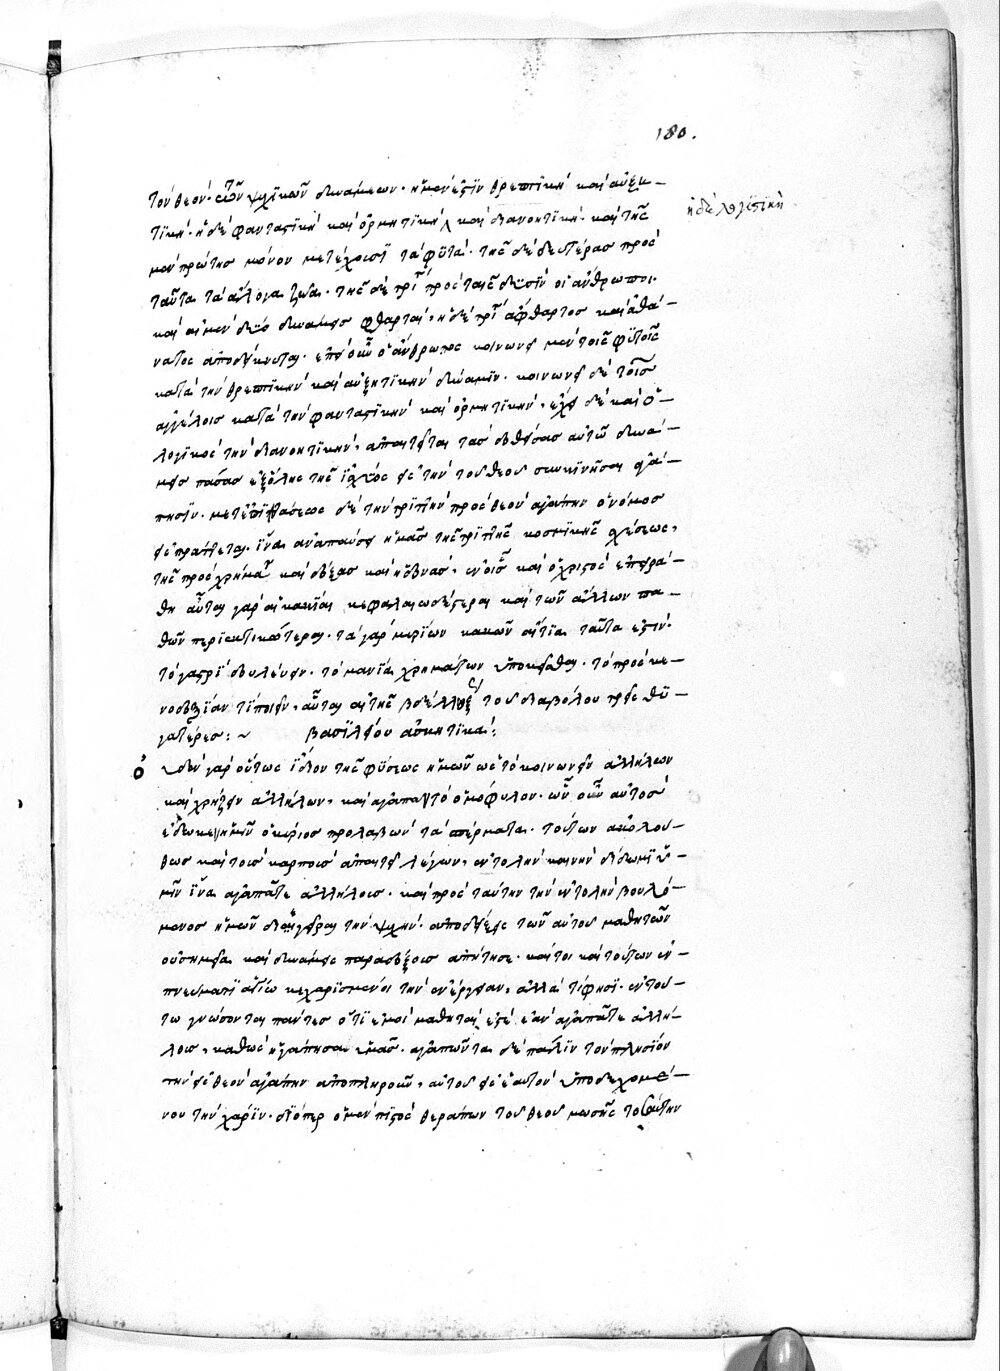 180.
τὸν θεόν. τῶν ψυχικῶν δυνάμεων. ἡ μέν ἐστιν θρεπτικὴ καὶ αὐξη-
τική. ἡ δὲ φανταστικὴ καὶ ὁρμητικὴ καὶ διανοητική. καὶ τῆς
ἡ δὲ λογιστικὴ
μὲν πρώτης μόνον μετέχουσι τὰ φυτά. τῆς δὲ δευτέρας πρὸς
ταύτα τὰ ἄλογα ζῶα. τῆς δὲ τρί πρὸς ταῖς δυσὶν οἱ ἄνθρωποι.
καὶ αἱ μὲν δύο δυνάμεις φθαρταί, ἡ δὲ τρί ἄφθαρτος καὶ ἀθά-
νατος ἀποδείκνυται. ὁ ἄνθρωπος κοινωνεῖ μὲν τοῖς φυτοῖς
κατὰ τὴν θρεπτικὴν καὶ αὐξητικὴν δύναμιν. κοινωνεῖ δὲ τοῖς
ἀγγέλοις κατὰ τὴν φανταστικὴν καὶ ὁρμητικήν, ἔχει δὲ καὶ ὁ
λογικὸς τὴν διανοητικήν, ἀπαιτεῖται τὰς δοθείσας αὐτῷ δυνά-
μεις πάσας ἐξ ὅλης τῆς ἰσχύος εἰς τὴν τοῦ θεοῦ συγκινῆσαι ἀγά-
πησιν. δὲ τὴν τριττὴν πρὸς θεὸν ἀγάπην ὁ νόμος
εἰσπράττεται. ἵνα ἀναπαύσῃ ἡμᾶς τῆς τριττῆς κοσμικῆς σχέσεως,
τῆς πρὸς χρήμα καὶ δόξας καὶ ἡδονάς, ἐν οἷς καὶ ὁ χριστὸς ἐπειρά-
θη αὗται γὰρ αἱ κακίαι κεφαλαιωδέστεραι καὶ τῶν ἄλλων πα-
θῶν περιεκτικώτεραι. τὰ γὰρ μυρίων κακῶν αἴτια ταῦτα ἐστίν.
τὸ γαστρὶ δουλεύειν. τὸ μανία χρημάτων ὑποκεῖσθαι. τὸ πρὸς κε-
νοδοξίαν τί ποιεῖν, αὗται αἱ τῆς βδέλλης τοῦ διαβόλου τρεῖς θυ-
γατέρες: ~ βασιλείου ἀσκητικά:
Οὐδὲν γὰρ οὕτως ἴδιον τῆς φύσεως ἡμῶν ὡς τὸ κοινωνεῖν ἀλλήλων
καὶ χρήζειν ἀλλήλων, καὶ ἀγαπᾶν τὸ ὁμόφυλον. ὧν οὖν αὐτὸς
ἔδωκεν ἡμῖν ὁ κύριος προλαβὼν τὰ σπέρματα. τούτων ἀκολού-
θως καὶ τοὺς καρποὺς ἀπαιτεῖ λέγων, ἐντολὴν καινὴν δίδωμι ὑ-
μῖν ἵνα ἀγαπᾶτε ἀλλήλους. καὶ πρὸς ταύτην τὴν ἐντολὴν βουλό-
μενος ἡμῶν διεγεῖραι τὴν ψυχήν. ἀπόδειξις τῶν αὐτοῦ μαθητῶν
οὐ σημεῖα καὶ δυνάμεις παραδόξους ἀπήτησε. καίτοι καὶ τούτων ἐν
πνεύματι ἁγίω κεχαρισμένοι τὴν ἐνέργειαν, ἀλλὰ τί φησι. ἐν τού-
τω γνώσονται πάντες ὅτι ἐμοὶ μαθηταί ἐστέ ἐὰν ἀγαπᾶτε ἀλλή-
λους, καθὼς ἠγάπησα ὑμᾶς. ἀγαπῶντα δὲ πάλιν τὸν πλησίον
τὴν εἰς θεὸν ἀγάπην ἀποπληροῦν, αὐτοῦ εἰς ἑαυτὸν ὑποδεχομέ-
νου τὴν χάριν. διόπερ ὁ μὲν πιστὸς θεράπων τοῦ θεοῦ μωσῆς τοσαύτην